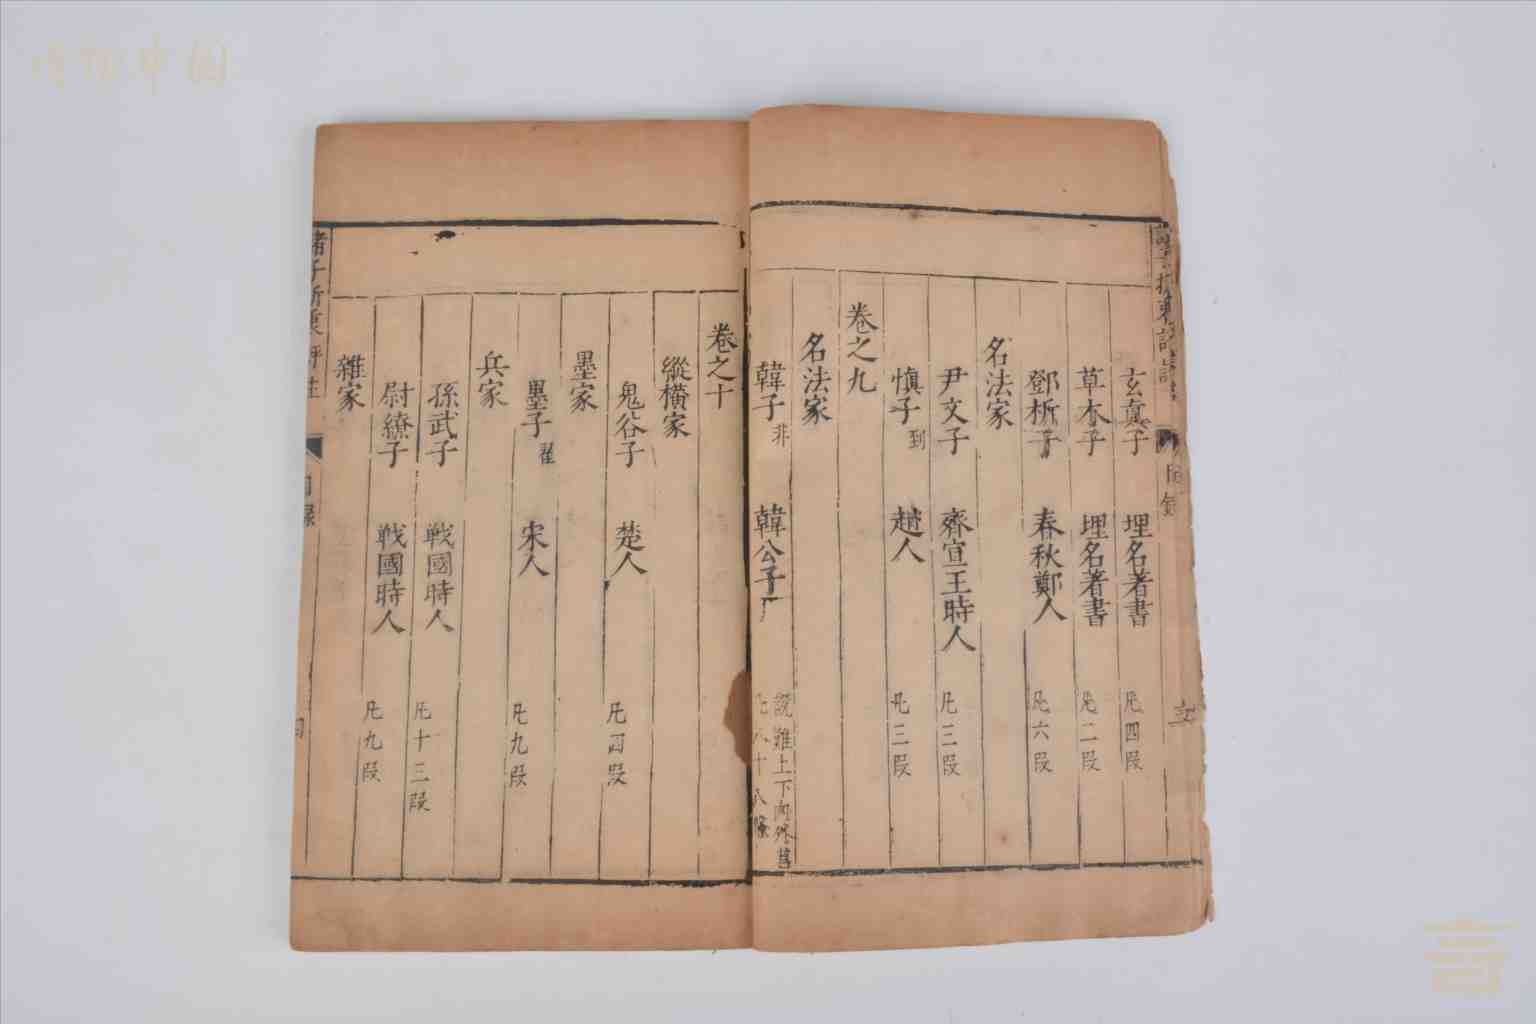 玄真子 埋名著書 凡四段
草木子 埋名著書 凡二段
鄧析子 春秋鄭人 凡六段
名法家
尹文子 齊宣王時人 凡三段
慎子 到 趙人 凡三段
卷之九
名法家
韓子 非 韓公子 說難上下內外
八十八條
卷之十
縱橫家
鬼谷子 楚人 凡四段
墨家
墨子 翟 宋人 凡九段
兵家
孫武子 戰國時人 凡十三段
尉繚子 戰國時人 凡九段
雜家
諸子折衷評註 目錄 四
中國